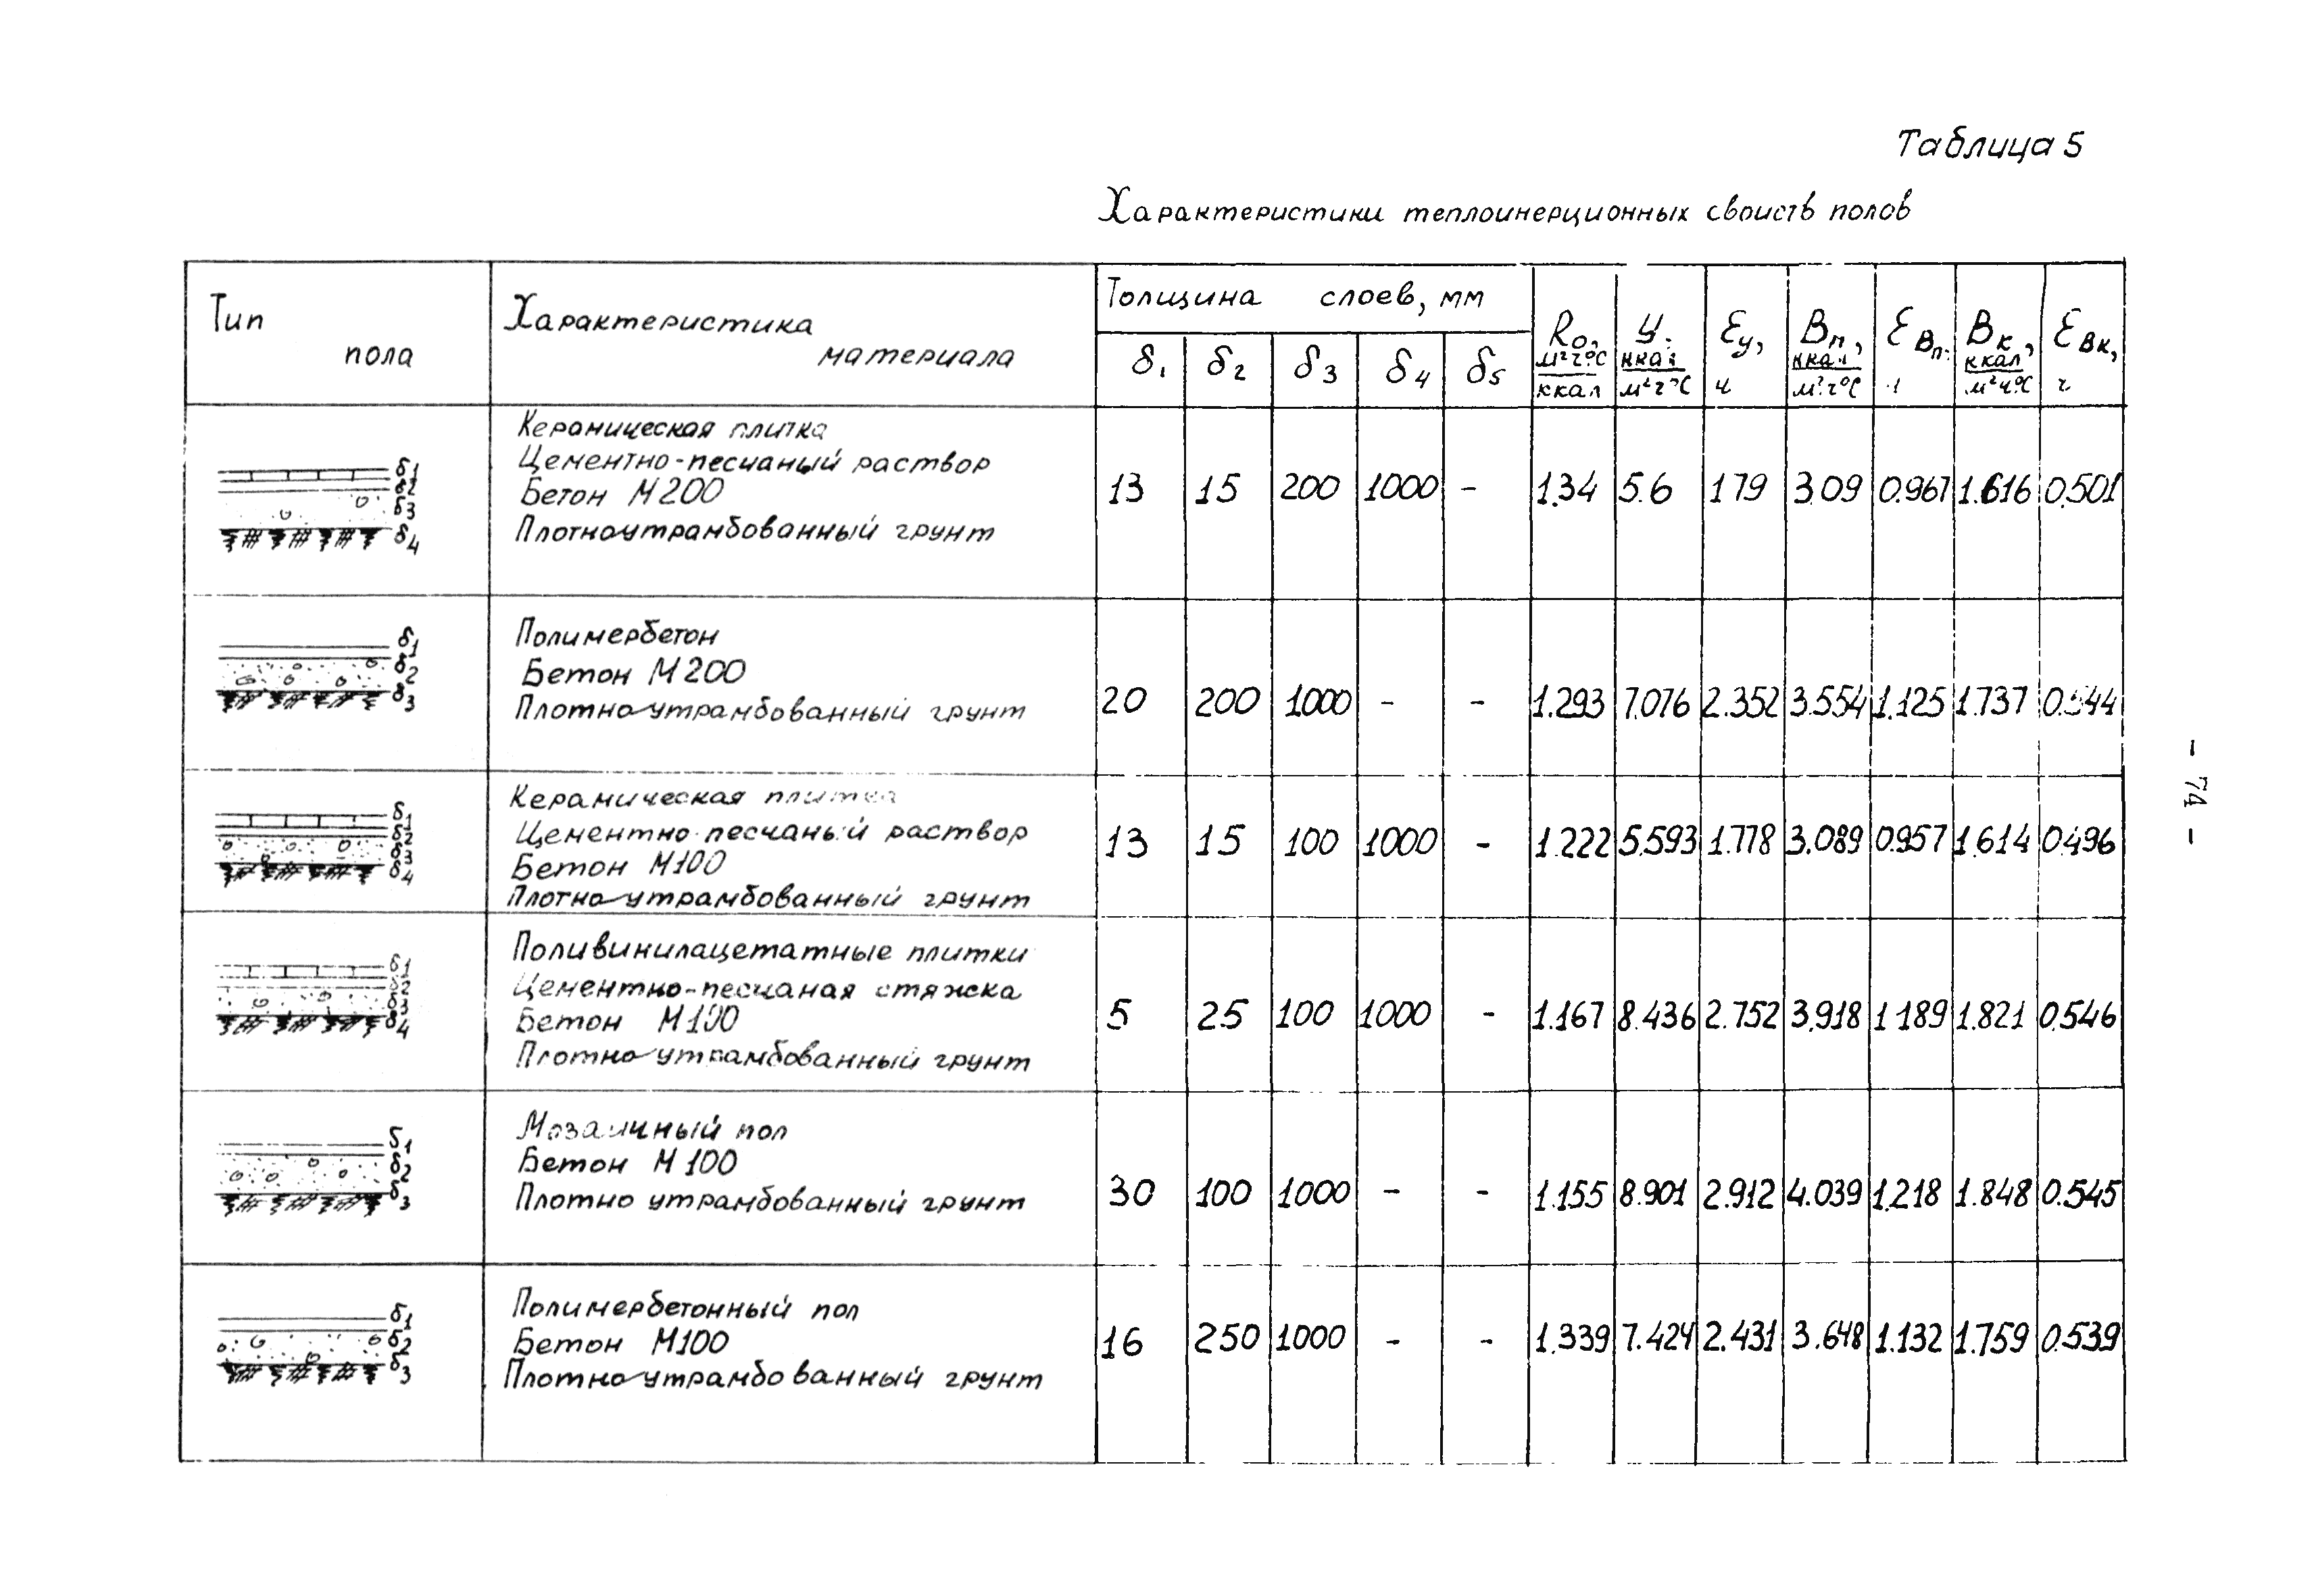 Таблица 5
Характеристики теплоинерционных свойств полов
Тип пола
Характеристика материала
Толщина слоев, мм
δ1 δ2 δ3 δ4 δ5
R0, м²ч°С/ккал
У, ккал/м²ч°С
εу, ч
Вп, ккал/м²ч°С
εВп,
Вк, ккал/м²ч°С
εВк, ч
δ1
δ2
δ3
δ4
Керамическая плитка
Цементно-песчаный раствор
Бетон М200
Плотноутрамбованный грунт
13 15 200 1000 - 1.34 5.6 1 79 3.09 0.967 1.616 0.501
δ1
δ2
δ3
Полимербетон
Бетон М200
Плотно утрамбованный грунт
20 200 1000 - - 1.293 7.076 2.352 3.554 1.125 1.737 0.544
δ1
δ2
δ3
δ4
Керамическая плитка
Цементно песчаный раствор
Бетон М100
Плотно утрамбованный грунт
13 15 100 1000 - 1.222 5.593 1.778 3.089 0.957 1.614 0.496
δ1
δ2
δ3
δ4
Поливинилацетатные плитки
Цементно-песчаная стяжска
Бетон М100
Плотно утрамбованный грунт
5 25 100 1000 - 1.167 8.436 2.752 3.918 1 189 1.821 0.546
δ1
δ2
δ3
Мозаичный пол
Бетон М 100
Плотно утрамбованный грунт
30 100 1000 - - 1.155 8.901 2.912 4.039 1.218 1.848 0.545
δ1
δ2
δ3
Полимербетонный пол
Бетон М100
Плотно утрамбованный грунт
16 250 1000 - - 1.339 7.424 2.431 3.648 1.132 1.759 0.539
- 74 -